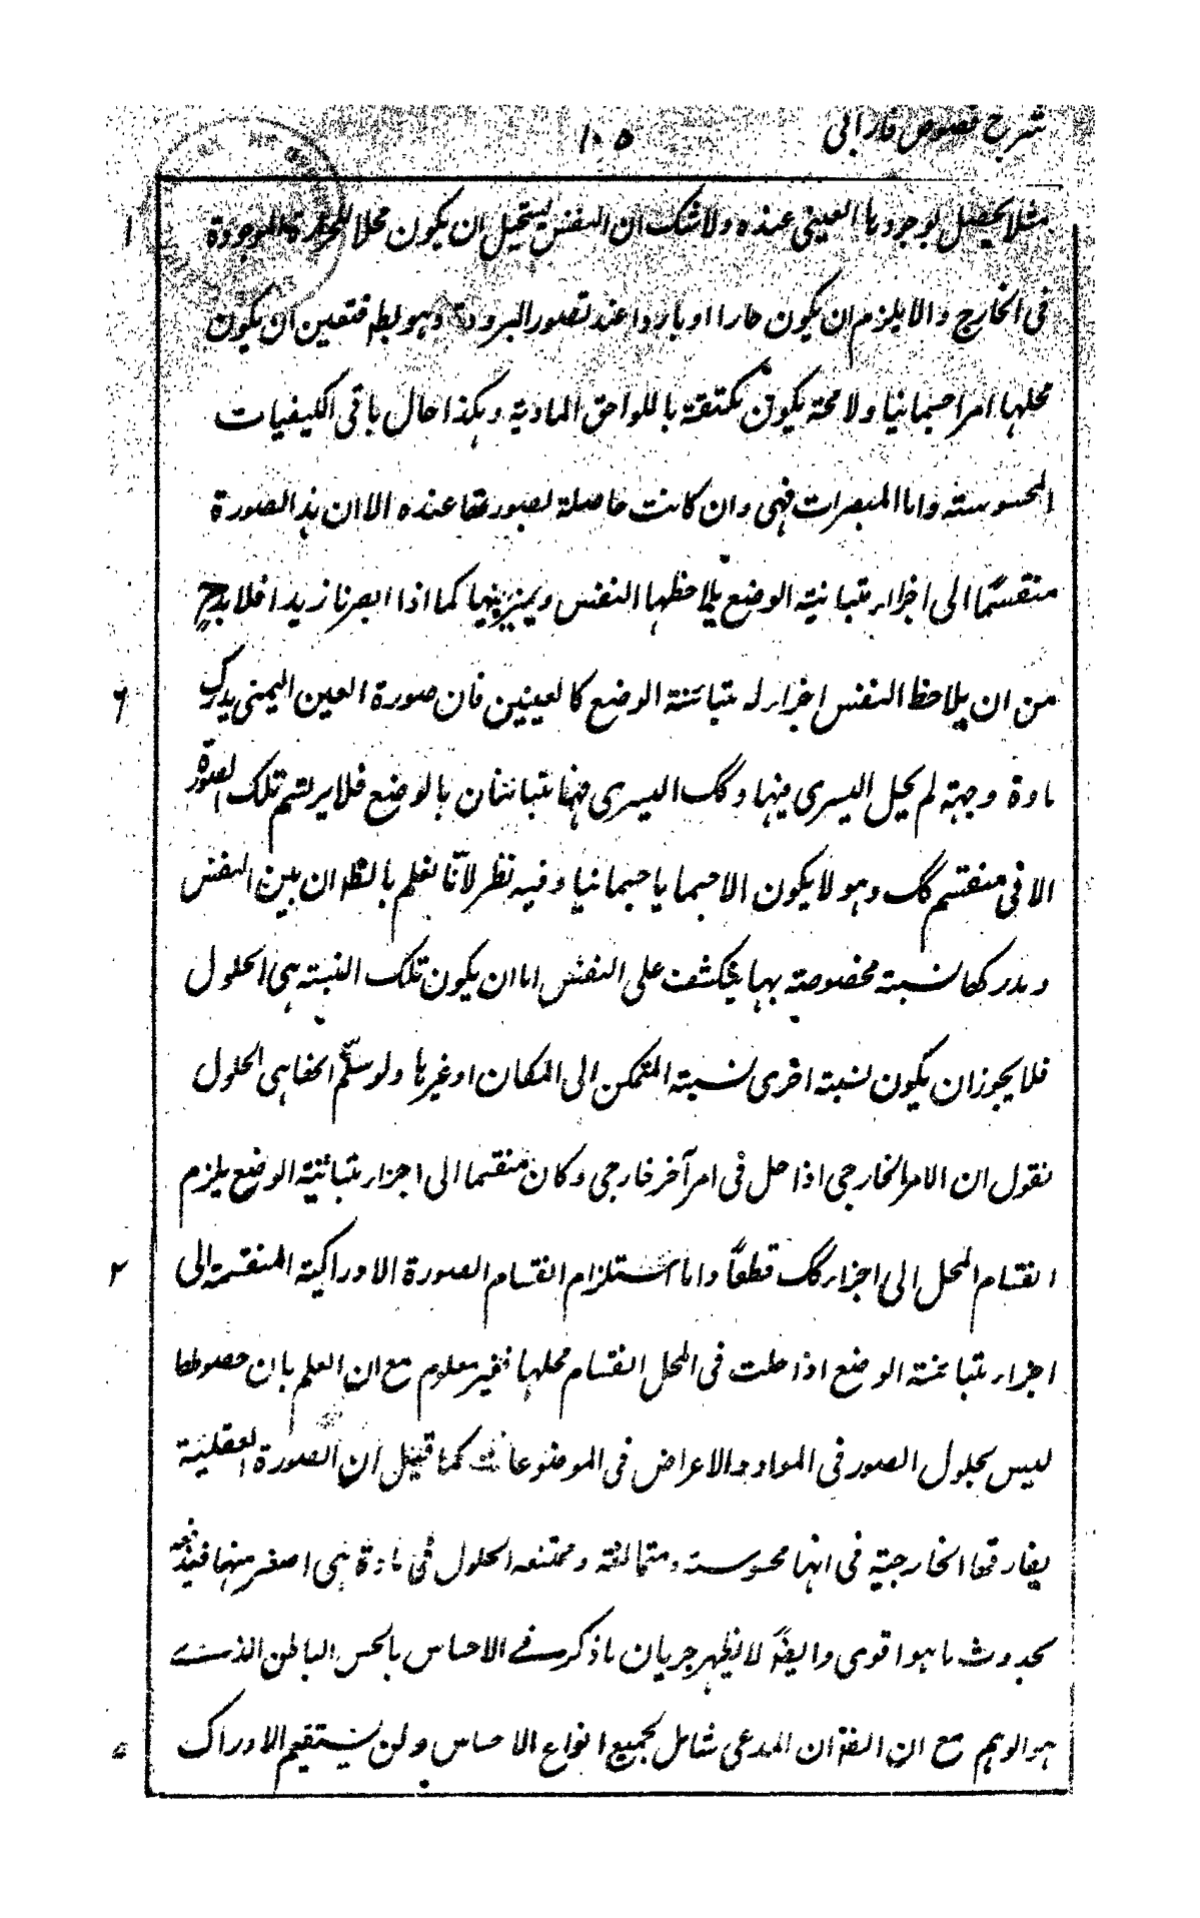 شرح فصوص فارابی
۱۰۵
مثلا یحصل لوجودہا العینی عندہ ولاشک ان النفس یستحیل ان یکون محلا للحرارۃ الموجودۃ
۱
فی الخارج والا یلزم ان یکون حارا او باردا عند تصور البرودۃ وہو بط فتعین ان یکون
محلہا امرا جسمانیا ولامحۃ یکون مکتنفۃ باللواحق المادیۃ وہکذا حال باقی الکیفیات
المحسوستہ واما المبصرات فہی وان کانت حاصلۃ بصورتھا عندہ الا ان ہذہ الصورۃ
منقسمۃ الی اجزاء متباینتہ الوضع یلاحظہا النفس ویمیز بینہا کما اذا ابصرنا زیدا فلا بد ح
من ان یلاحظ النفس اجزاء لہ متبائنۃ الوضع کالعینین فان صورۃ العین الیمنی یدرک
۶
مادۃ وجہتہ لم یحل الیسری فیہا وکک الیسری فہما متبائنان بالوضع فلا یرتسم تلک الصورۃ
الا فی منقسم کک وہو لا یکون الا جسما یا جسمانیا وفیہ نظر لانّا نعلم بالنظر ان بین النفس
ومدرکھا نسبتہ مخصوصتہ بہا ینکشف علی النفس اما ان یکون تلک النسبتہ ہی الحلول
فلا یجوز ان یکون نسبتہ اخری نسبتہ المتمکن الی المکان او غیرہا ولو سلّم انھا ہی الحلول
نقول ان الامر الخارجی اذا حل فی امر آخر خارجی وکان منقسما الی اجزاء متبائنیۃ الوضع یلزم
انقسام المحل الی اجزاء کک قطعًا واما استلزام انقسام الصورۃ الادراکیۃ المنقسمۃ الی
۲
اجزاء متبائنتہ الوضع اذا حلت فی المحل انقسام محلہا فغیر معلوم مع ان العلم بان حصولھا
لیس بحلول الصور فی المواد والاعراض فی الموضوعات کما قیل ان الصورۃ العقلیۃ
یفارقھا الخارجیۃ فی انہا محسوستہ ومتمانعتہ وممتنعہ الحلول فی مادۃ ہی اصغر منہا
بحدوث ما ہو اقوی وایضًا لا یظہر جریان ماذکر فی الاحساس بالحس الباطن الذی
ہو الوہم مع ان المدعی شامل لجمیع انواع الاحساس ولن یستقیم الادراک